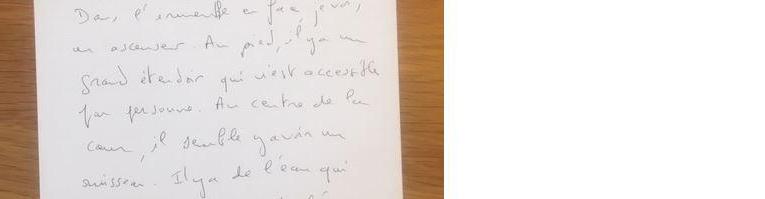 Dans l'immeuble en face, je vois
un ascenseur. Au pied, il y a un
grand étendoir qui n'est accessible
par personne. Au centre de la
cour, il semble y avoir un
ruisseau. Il y a de l'eau qui